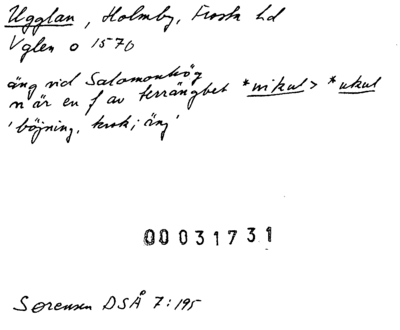 Ugglan, Holmby, Frosta hd
Vglen o 1570
äng vid Salomonhög
n är en f av terrängbet *wikul > *ukul
'böjning, krok; äng'
00031731
Sørensen DSÅ 7:195